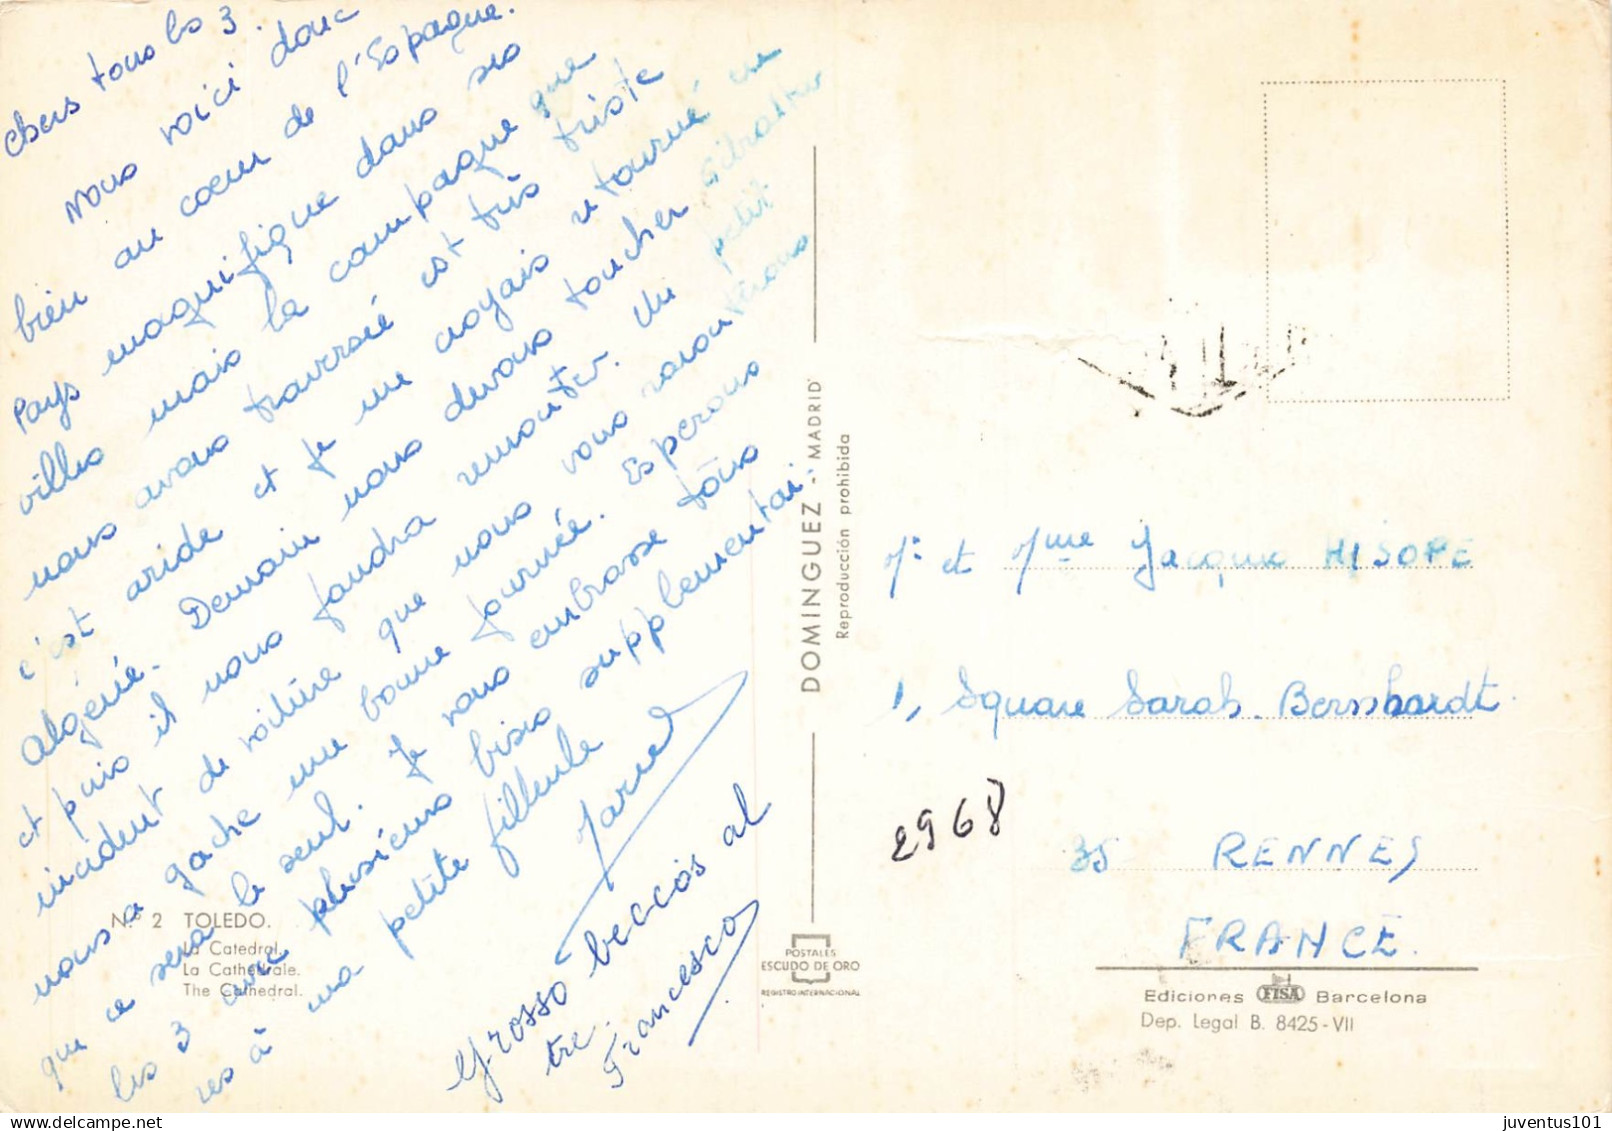 chers tous les 3.
Nous voici donc
bien au coeur de l'Espagne.
Pays magnifique dans ses
villes mais la campagne que
nous avons traversé est très triste
c'est aride et je me croyais retourné en
Algérie. Demain nous devons toucher Gibraltar
et puis il nous faudra remonter. Un petit
incident de voiture que nous vous raconterons
nous a gaché une bonne journée. Espérons
que ce sera le seul. Je vous embrasse tous
les 3 avec plusieurs bises supplementai-
res à ma petite filleule
Grosso beccos al
tre.
Francesco
Nº 2 TOLEDO.
La Catedral.
La Cathédrale.
The Cathedral.
DOMINGUEZ - MADRID
Reproducción prohibida
POSTALES
ESCUDO DE ORO
REGISTRO INTERNACIONAL
Mr et Mme Jacques HISOPE
1, Square Sarah. Bernhardt
2968
35 RENNES
FRANCE.
Ediciones FISA Barcelona
Dep. Legal B. 8425-VII
juventus101